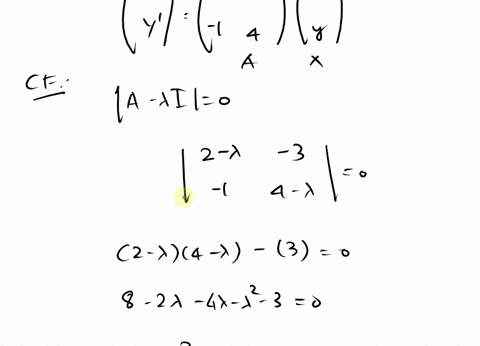 (y') = (-1 4)(y)
A x
CF:-
|A - λI| = 0
|2-λ -3|
|-1 4-λ| = 0
(2-λ)(4-λ) - (3) = 0
8 - 2λ - 4λ - λ² - 3 = 0